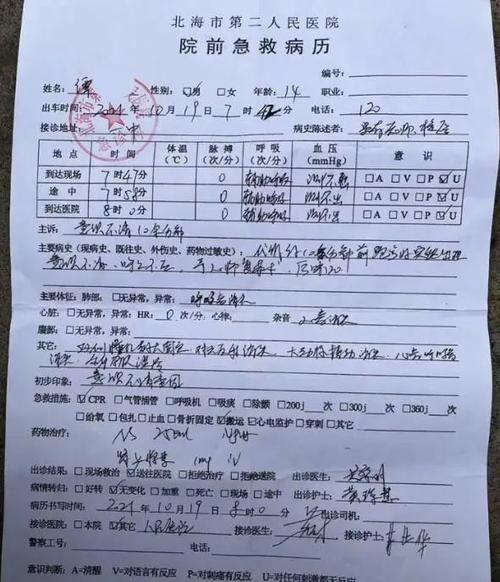 北海市第二人民医院
院前急救病历
编号:
姓名: 谭 性别: ☑男 □女 年龄: 14 职业:
出车时间: 2024年10月19日7时42分 电话: 120
接诊地址: 一中 病史陈述者:
地点 时间 体温(℃) 脉搏(次/分) 呼吸(次/分) 血压(mmHg) 意识
到达现场 7时47分 0 辅助呼吸 测不出 □A □V □P ☑U
途中 7时58分 0 辅助呼吸 测不出 □A □V □P ☑U
到达医院 8时0分 0 辅助呼吸 测不出 □A □V □P ☑U
主诉: 意识不清10余分钟
主要病史(现病史、既往史、外伤史、药物过敏史): 代诉约10余分钟前跑步时突然出现
意识不清, 呼之不应
主要体征: 肺部: □无异常, 异常: 呼吸音消失
心脏: □无异常, 异常: HR: 0次/分, 心律: 杂音 心音消失
腹部: □无异常, 异常:
其它: 双侧瞳孔散大固定, 对光反射消失, 大动脉搏动消失, 心电图
初步印象: 意识不清查因
急救措施: ☑CPR □气管插管 □呼吸机 □吸痰 □除颤 □200j 次 □300j 次 □360j 次
□给氧 □包扎 □止血 □骨折固定 ☑搬运 ☑心电监护 □穿刺 □其它
药物治疗: NS 250ml
肾上腺素 1mg iv
出诊结果: □现场救治 ☑送往医院 □拒绝治疗 □拒绝送院 出诊医生:
病情转归: □好转 ☑无变化 □加重 □死亡 □现场 □途中 出诊护士:
病历书写时间: 2024年10月19日8时0分 出诊司机:
接诊医院: □本院 ☑其它 人民医院 接诊医生: 接诊护士:
警察工号: 电话:
意识判断: A=清醒 V=对语言有反应 P=对刺痛有反应 U=对任何刺激都无反应